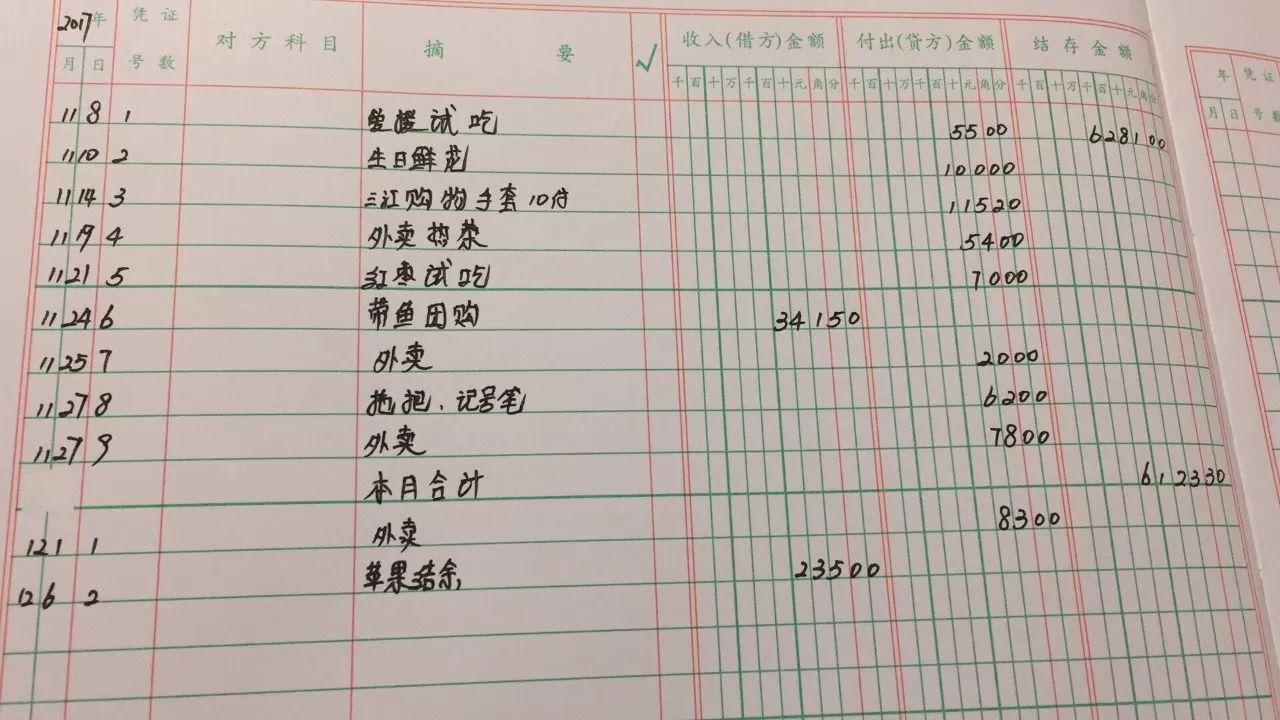 2017年 凭证 对方科目 摘要 √ 收入(借方)金额 付出(贷方)金额 结存金额
月 日 号数 千百十万千百十元角分 千百十万千百十元角分 千百十万千百十元角分
11 8 1 试吃 5500 628100
11 10 2 生日鲜花 10000
11 14 3 三江购物手套10付 11520
11 19 4 外卖 5400
11 21 5 红枣试吃 7000
11 24 6 带鱼团购 34150
11 25 7 外卖 2000
11 27 8 拖把、记号笔 6200
11 27 9 外卖 7800
本月合计 612330
12 1 1 外卖 8300
12 6 2 苹果结余 23500
年 凭证
月 日 号数